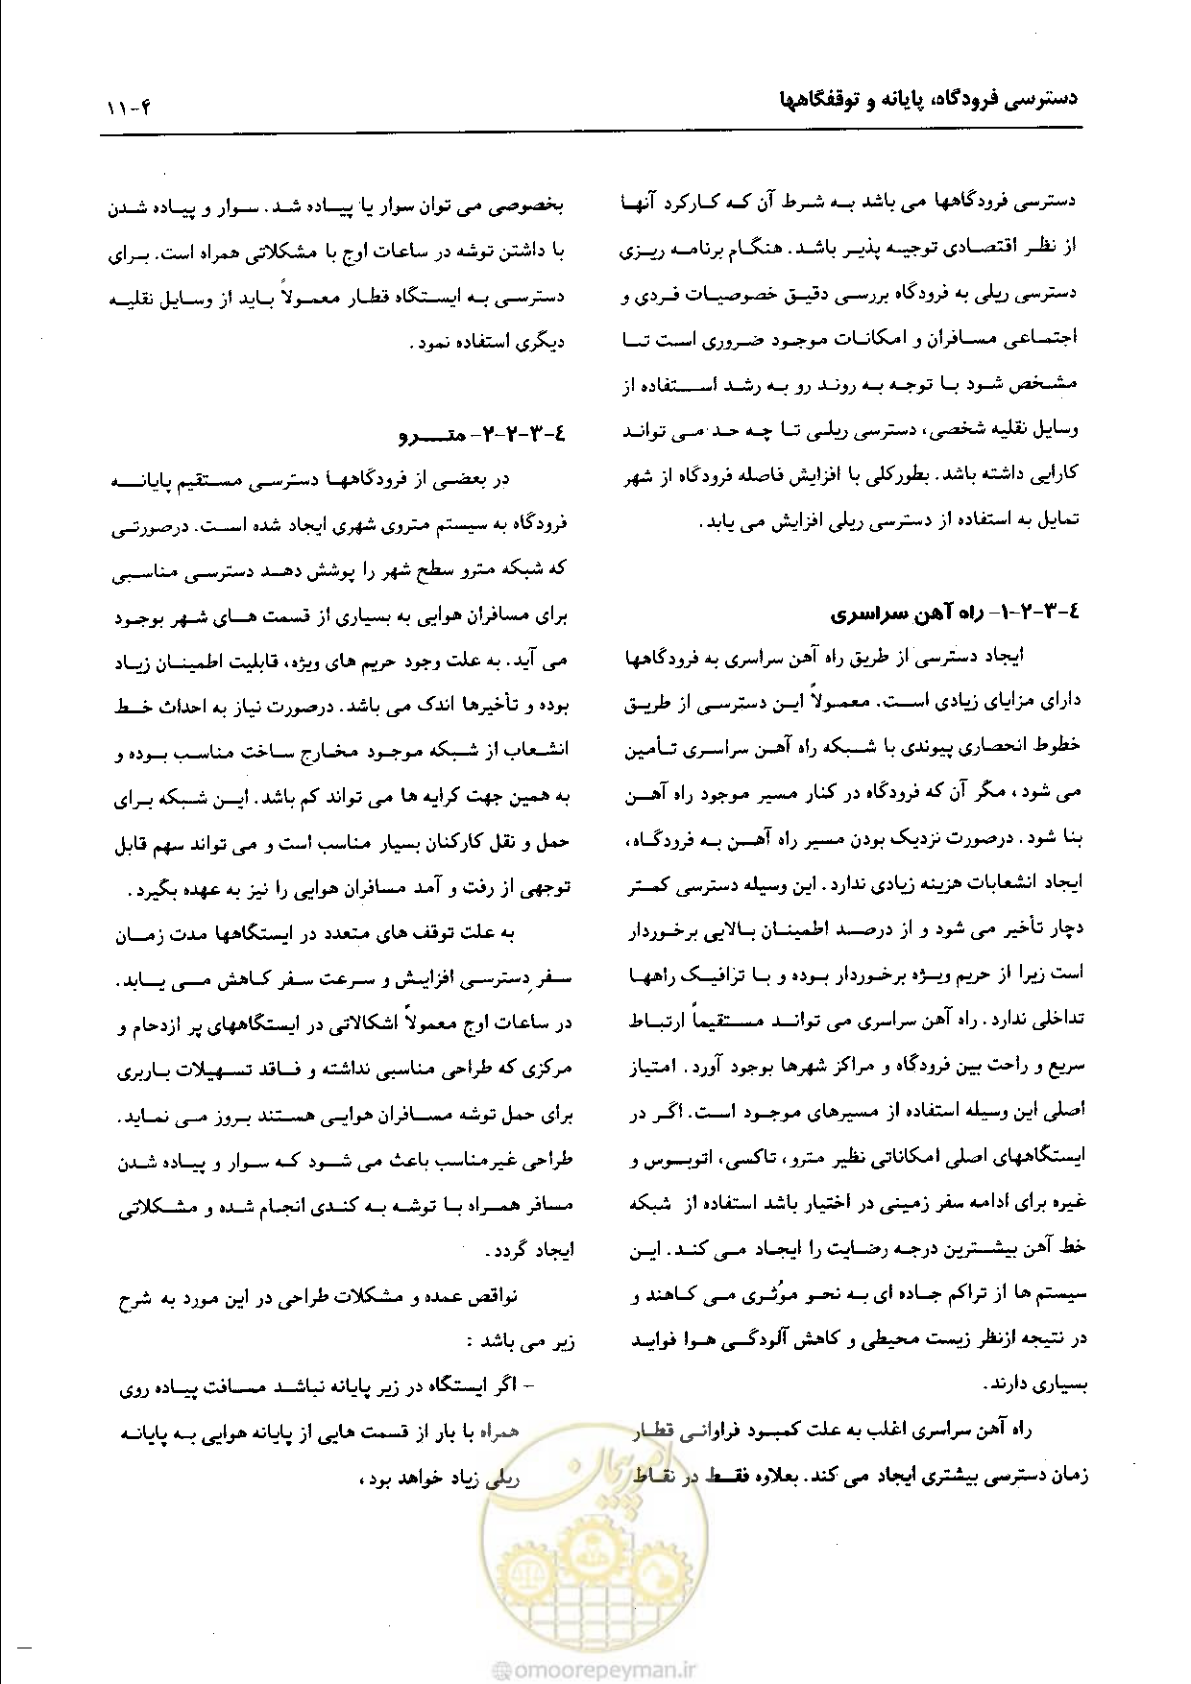 دسترسی فرودگاه، پایانه و توقفگاهها
۱۱-۴
دسترسی فرودگاهها می باشد به شرط آن که کارکرد آنها
از نظر اقتصادی توجیه پذیر باشد. هنگام برنامه ریزی
دسترسی ریلی به فرودگاه بررسی دقیق خصوصیات فردی و
اجتماعی مسافران و امکانات موجود ضروری است تا
مشخص شود با توجه به روند رو به رشد استفاده از
وسایل نقلیه شخصی، دسترسی ریلی تا چه حد می تواند
کارایی داشته باشد. بطورکلی با افزایش فاصله فرودگاه از شهر
تمایل به استفاده از دسترسی ریلی افزایش می یابد.
٤-۳-۲-۱- راه آهن سراسری
ایجاد دسترسی از طریق راه آهن سراسری به فرودگاهها
دارای مزایای زیادی است. معمولاً این دسترسی از طریق
خطوط انحصاری پیوندی با شبکه راه آهن سراسری تأمین
می شود، مگر آن که فرودگاه در کنار مسیر موجود راه آهن
بنا شود. درصورت نزدیک بودن مسیر راه آهن به فرودگاه،
ایجاد انشعابات هزینه زیادی ندارد. این وسیله دسترسی کمتر
دچار تأخیر می شود و از درصد اطمینان بالایی برخوردار
است زیرا از حریم ویژه برخوردار بوده و با ترافیک راهها
تداخلی ندارد. راه آهن سراسری می تواند مستقیماً ارتباط
سریع و راحت بین فرودگاه و مراکز شهرها بوجود آورد. امتیاز
اصلی این وسیله استفاده از مسیرهای موجود است. اگر در
ایستگاههای اصلی امکاناتی نظیر مترو، تاکسی، اتوبوس و
غیره برای ادامه سفر زمینی در اختیار باشد استفاده از شبکه
خط آهن بیشترین درجه رضایت را ایجاد می کند. این
سیستم ها از تراکم جاده ای به نحو مؤثری می کاهند و
در نتیجه ازنظر زیست محیطی و کاهش آلودگی هوا فواید
بسیاری دارند.
راه آهن سراسری اغلب به علت کمبود فراوانی قطار
زمان دسترسی بیشتری ایجاد می کند. بعلاوه فقط در نقاط
بخصوصی می توان سوار یا پیاده شد. سوار و پیاده شدن
با داشتن توشه در ساعات اوج با مشکلاتی همراه است. برای
دسترسی به ایستگاه قطار معمولاً باید از وسایل نقلیه
دیگری استفاده نمود.
٤-۳-۲-۲- مترو
در بعضی از فرودگاهها دسترسی مستقیم پایانه
فرودگاه به سیستم متروی شهری ایجاد شده است. درصورتی
که شبکه مترو سطح شهر را پوشش دهد دسترسی مناسبی
برای مسافران هوایی به بسیاری از قسمت های شهر بوجود
می آید. به علت وجود حریم های ویژه، قابلیت اطمینان زیاد
بوده و تأخیرها اندک می باشد. درصورت نیاز به احداث خط
انشعاب از شبکه موجود مخارج ساخت مناسب بوده و
به همین جهت کرایه ها می تواند کم باشد. این شبکه برای
حمل و نقل کارکنان بسیار مناسب است و می تواند سهم قابل
توجهی از رفت و آمد مسافران هوایی را نیز به عهده بگیرد.
به علت توقف های متعدد در ایستگاهها مدت زمان
سفر دسترسی افزایش و سرعت سفر کاهش می یابد.
در ساعات اوج معمولاً اشکالاتی در ایستگاههای پر ازدحام و
مرکزی که طراحی مناسبی نداشته و فاقد تسهیلات باربری
برای حمل توشه مسافران هوایی هستند بروز می نماید.
طراحی غیرمناسب باعث می شود که سوار و پیاده شدن
مسافر همراه با توشه به کندی انجام شده و مشکلاتی
ایجاد گردد.
نواقص عمده و مشکلات طراحی در این مورد به شرح
زیر می باشد :
- اگر ایستگاه در زیر پایانه نباشد مسافت پیاده روی
همراه با بار از قسمت هایی از پایانه هوایی به پایانه
ریلی زیاد خواهد بود،
امور پیمان
@omoorepeyman.ir